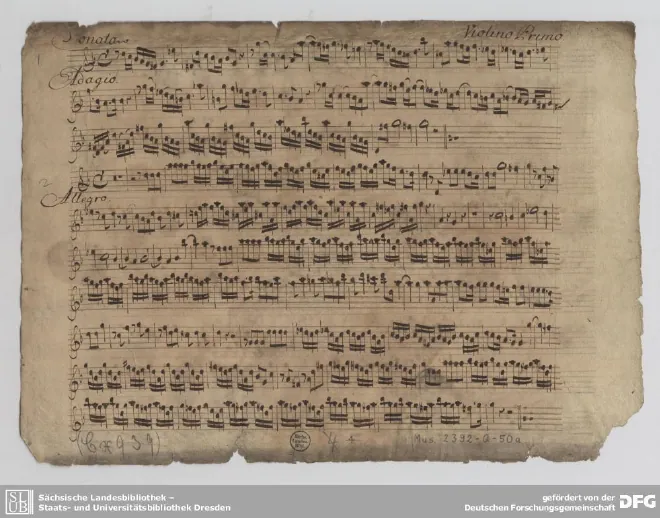 Sonata
Violino Primo
Adagio.
Allegro
Mus. 2392-Q-50a
SLUB
Sächsische Landesbibliothek –
Staats- und Universitätsbibliothek Dresden
gefördert von der
Deutschen Forschungsgemeinschaft
DFG